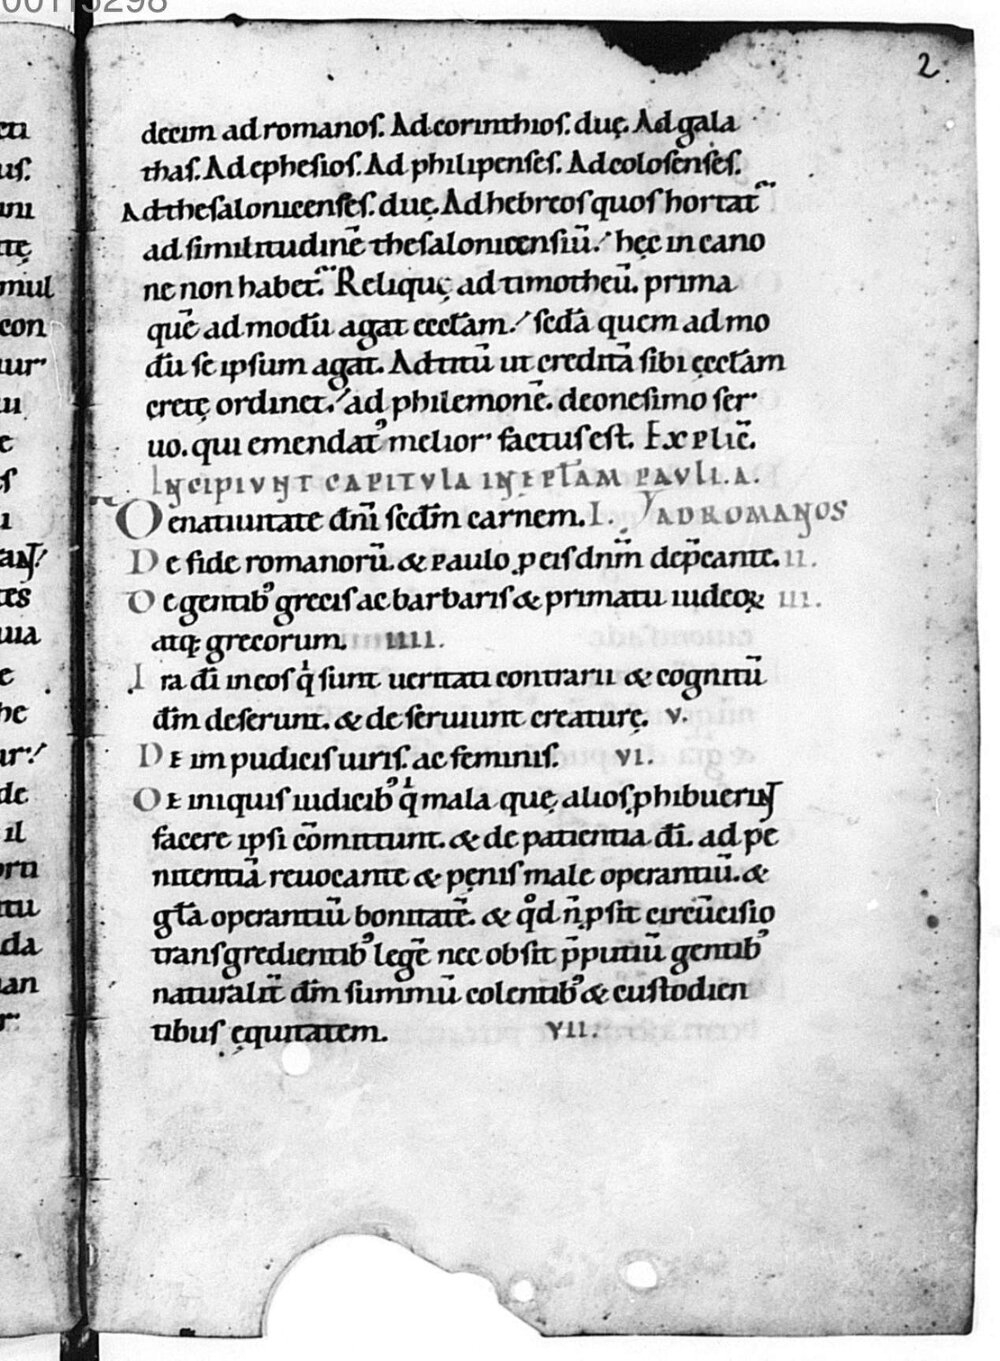 00113298
2
decim ad romanos. Ad corinthios. duę. Ad gala
thas. Ad ephesios. Ad philipenses. Ad colosenses.
Ad thesalonicenses. duę. Ad hebreos quos hortat᷒
ad similitudinē thesalonicensiū. hęc in cano
ne non habet᷒. Reliquę ad timotheū. prima
quē ad modū agat eccl̄am. secd̄a quem ad mo
dū se ipsum agat. Ad titū ut creditā sibi ęccl̄am
cretę ordinet. ad philemonē. de onesimo ser
uo. qui emendat᷒ melior factus est. Explic̄.
Incipiunt capitula in epl̄am pauli. a.
De natiuitate dn̄i secd̄m carnem. I. ad romanos
De fide romanorū. & Paulo ꝓ eis dn̄m dep̄cante. II.
De gentib᷒ grecis ac barbaris & primatu iudeoꝝ III.
atq; grecorum. IIII.
Ira dī in eos qͥ sunt ueritati contrarii & cognitū
dm̄ deserunt. & deseruiunt creaturę. V.
De impudicis uiris. ac feminis. VI.
De iniquis iudicib᷒ qͥ mala quę alios ꝓhibuerunt
facere ipsi cōmittunt. & de patientia dī. ad pe
nitentiā reuocante & pęnis male operantiū. &
gl̄a operantiū bonitatē. & qͦd n̄ ꝓsit circūcisio
transgredientib᷒ legē nec obsit p̄putiū gentib᷒
naturalit̄ dm̄ summū colentib᷒ & custodien
tibus ęquitatem. VII.